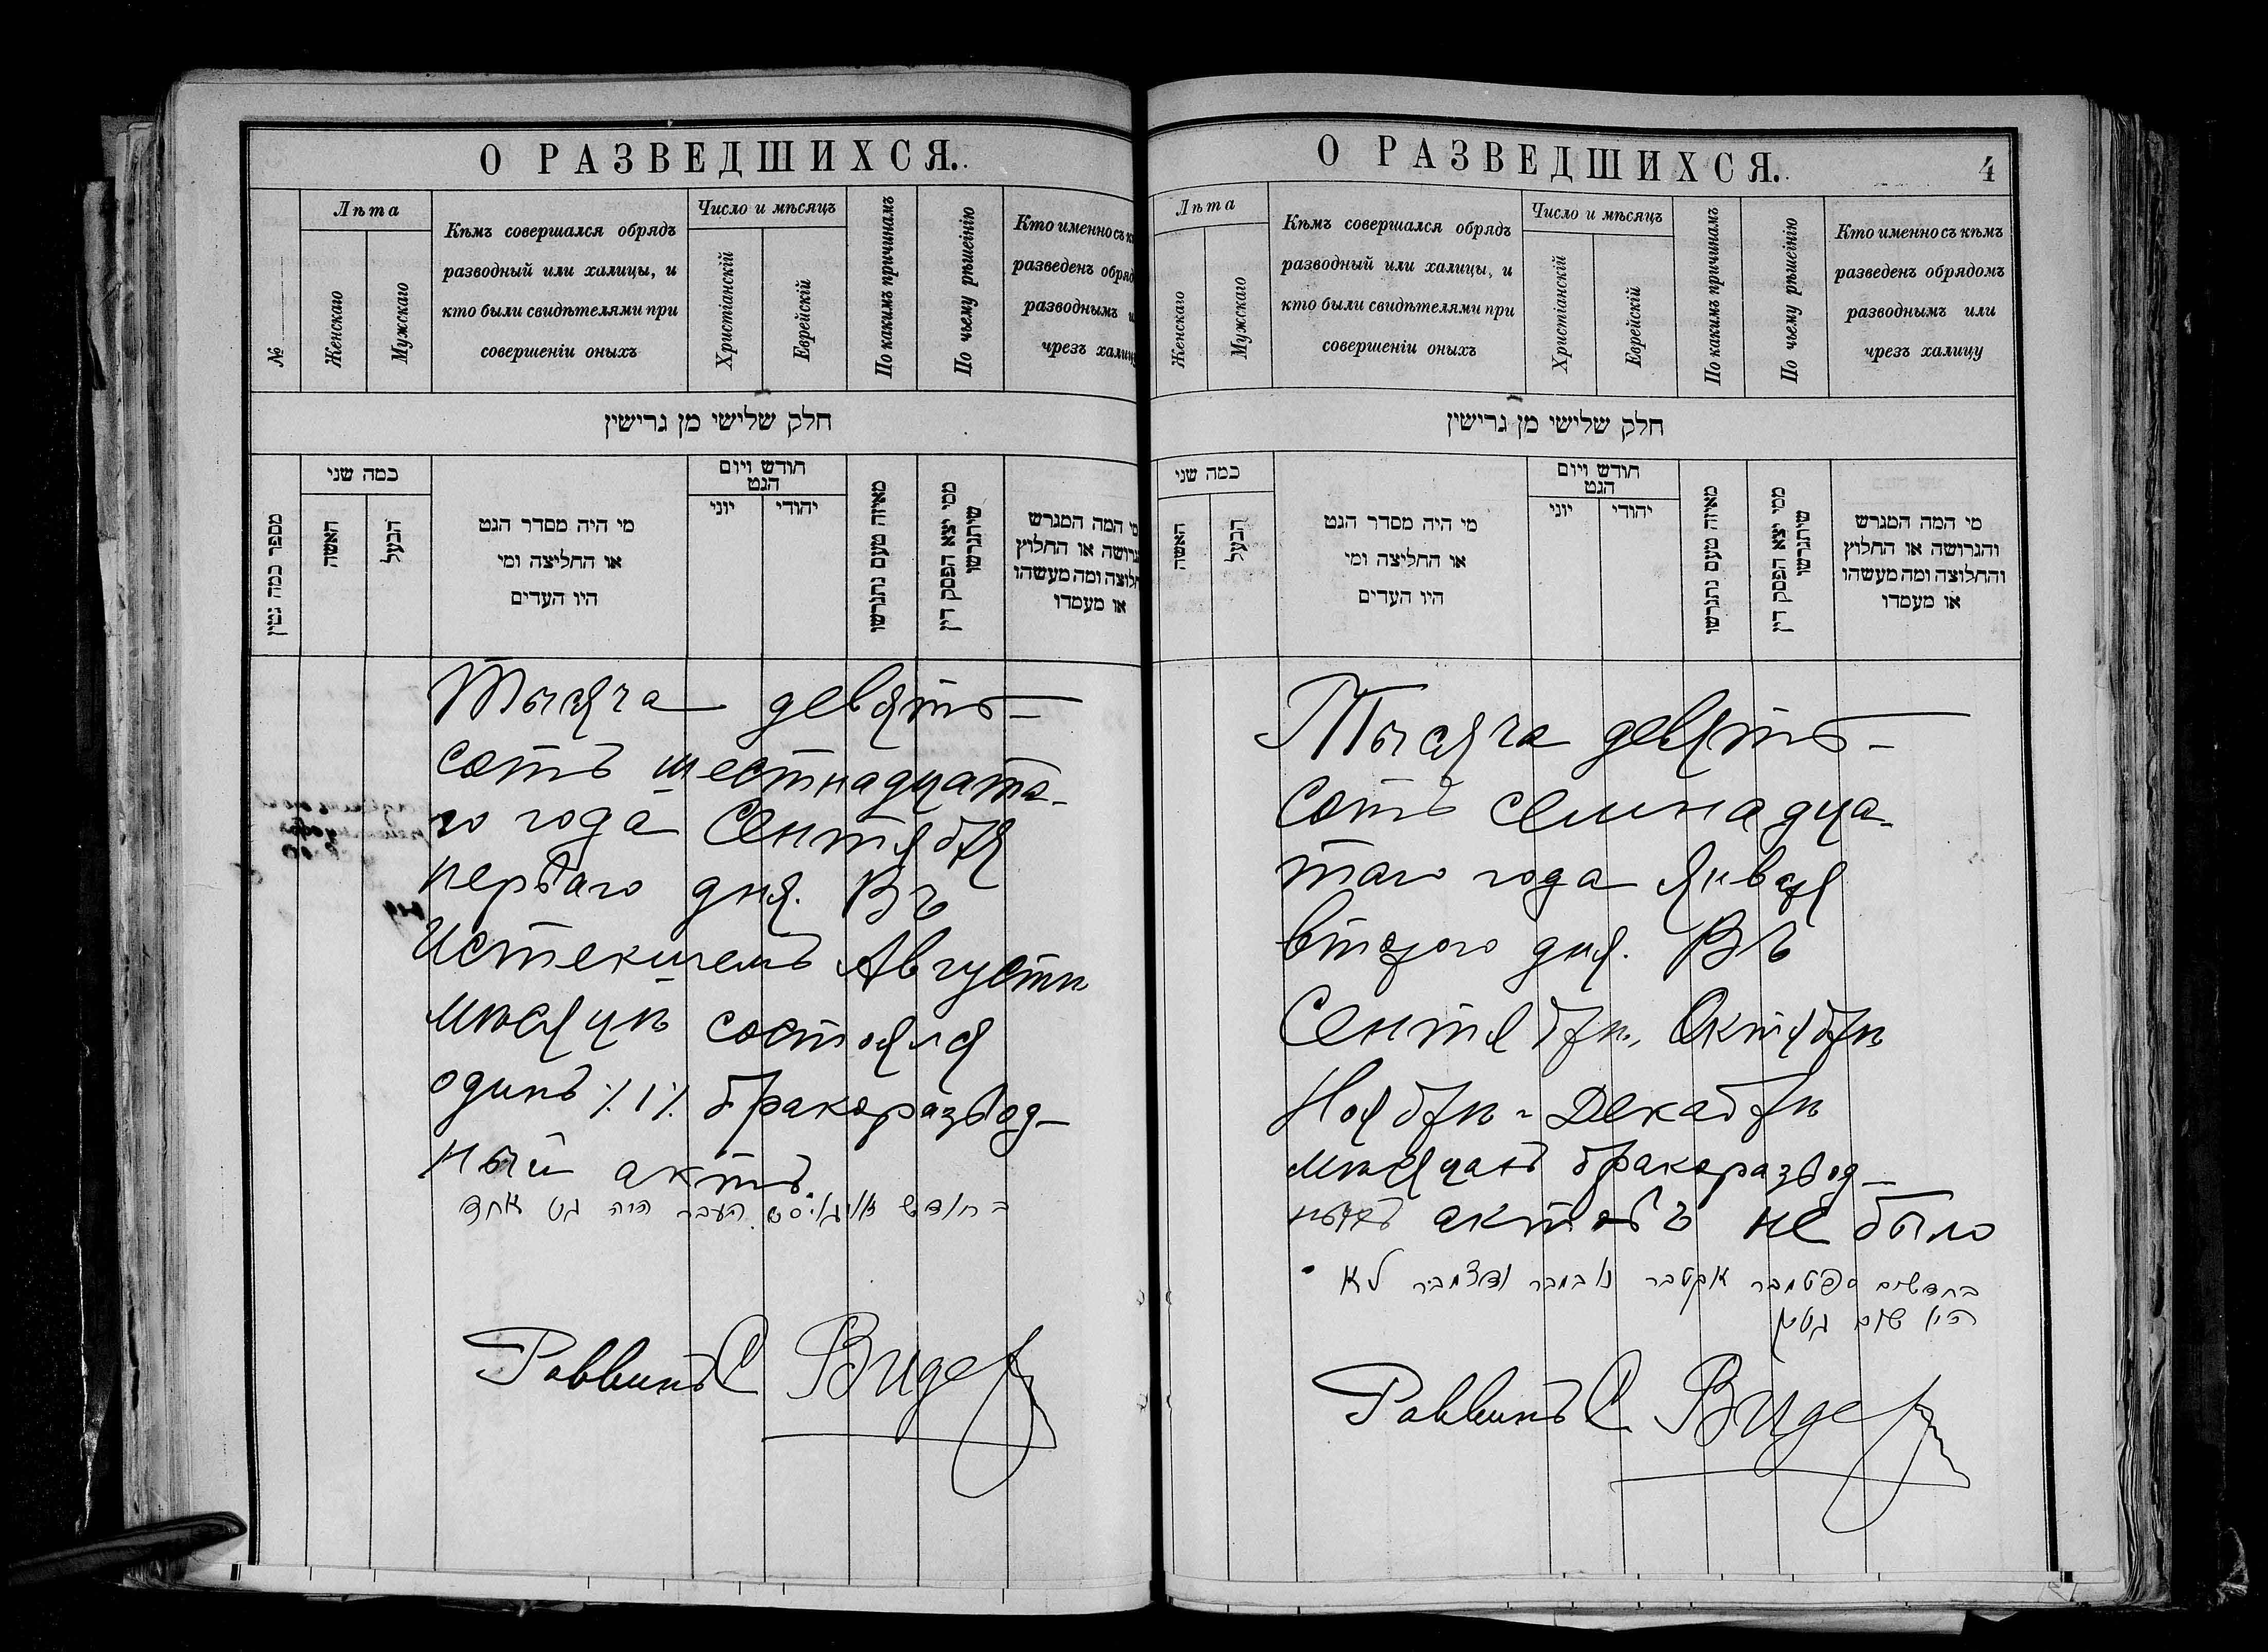 О РАЗВЕДШИХСЯ.
№
Лѣта
Женскаго
Мужскаго
Кѣмъ совершался обрядъ
разводный или халицы, и
кто были свидѣтелями при
совершеніи оныхъ
Число и мѣсяцъ
Христіанскій
Еврейскій
По какимъ причинамъ
По чьему рѣшенію
Кто именно съ
разведенъ обряд
разводнымъ и
чрезъ халиц
חלק שלישי מן גרישין
מספר כמה גטין
כמה שני
האשה
הבעל
מי היה מסדר הגט
או החליצה ומי
היו העדים
חודש ויום
הגט
יוני
יהודי
מאיזה טעם נתגרשו
ממי יצא הפסק דין
שיתגרשו
מי המה המגרש
גרושה או החלוץ
חלוצה ומה מעשהו
או מעמדו
Тысяча девять-
сотъ шестнадцата-
го года Сентября
перваго дня. Въ
Истекшемъ Августѣ
мѣсяцѣ состоялся
одинъ ٪1٪ бракоразвод-
ный актъ.
בחודש אויגוסט העבר היה גט אחד
Раввинъ С Видер
О РАЗВЕДШИХСЯ.
4
Лѣта
Женскаго
Мужскаго
Кѣмъ совершался обрядъ
разводный или халицы, и
кто были свидѣтелями при
совершеніи оныхъ
Число и мѣсяцъ
Христіанскій
Еврейскій
По какимъ причинамъ
По чьему рѣшенію
Кто именно съ кѣмъ
разведенъ обрядомъ
разводнымъ или
чрезъ халицу
חלק שלישי מן גרישין
כמה שני
האשה
הבעל
מי היה מסדר הגט
או החליצה ומי
היו העדים
חודש ויום
הגט
יוני
יהודי
מאיזה טעם נתגרשו
ממי יצא הפסק דין
שיתגרשו
מי המה המגרש
והגרושה או החלוץ
והחלוצה ומה מעשהו
או מעמדו
Тысяча девять-
сотъ семнадца-
таго года Января
втораго дня. Въ
Сентябрѣ, Октябрѣ
Ноябрѣ и Декабрѣ
мѣсяцахъ бракоразвод-
ныхъ актовъ не было
בחדשים ספטמבר אקטבר נובמבר ודצמבר לא
היו שום גטין
Раввинъ С Видер